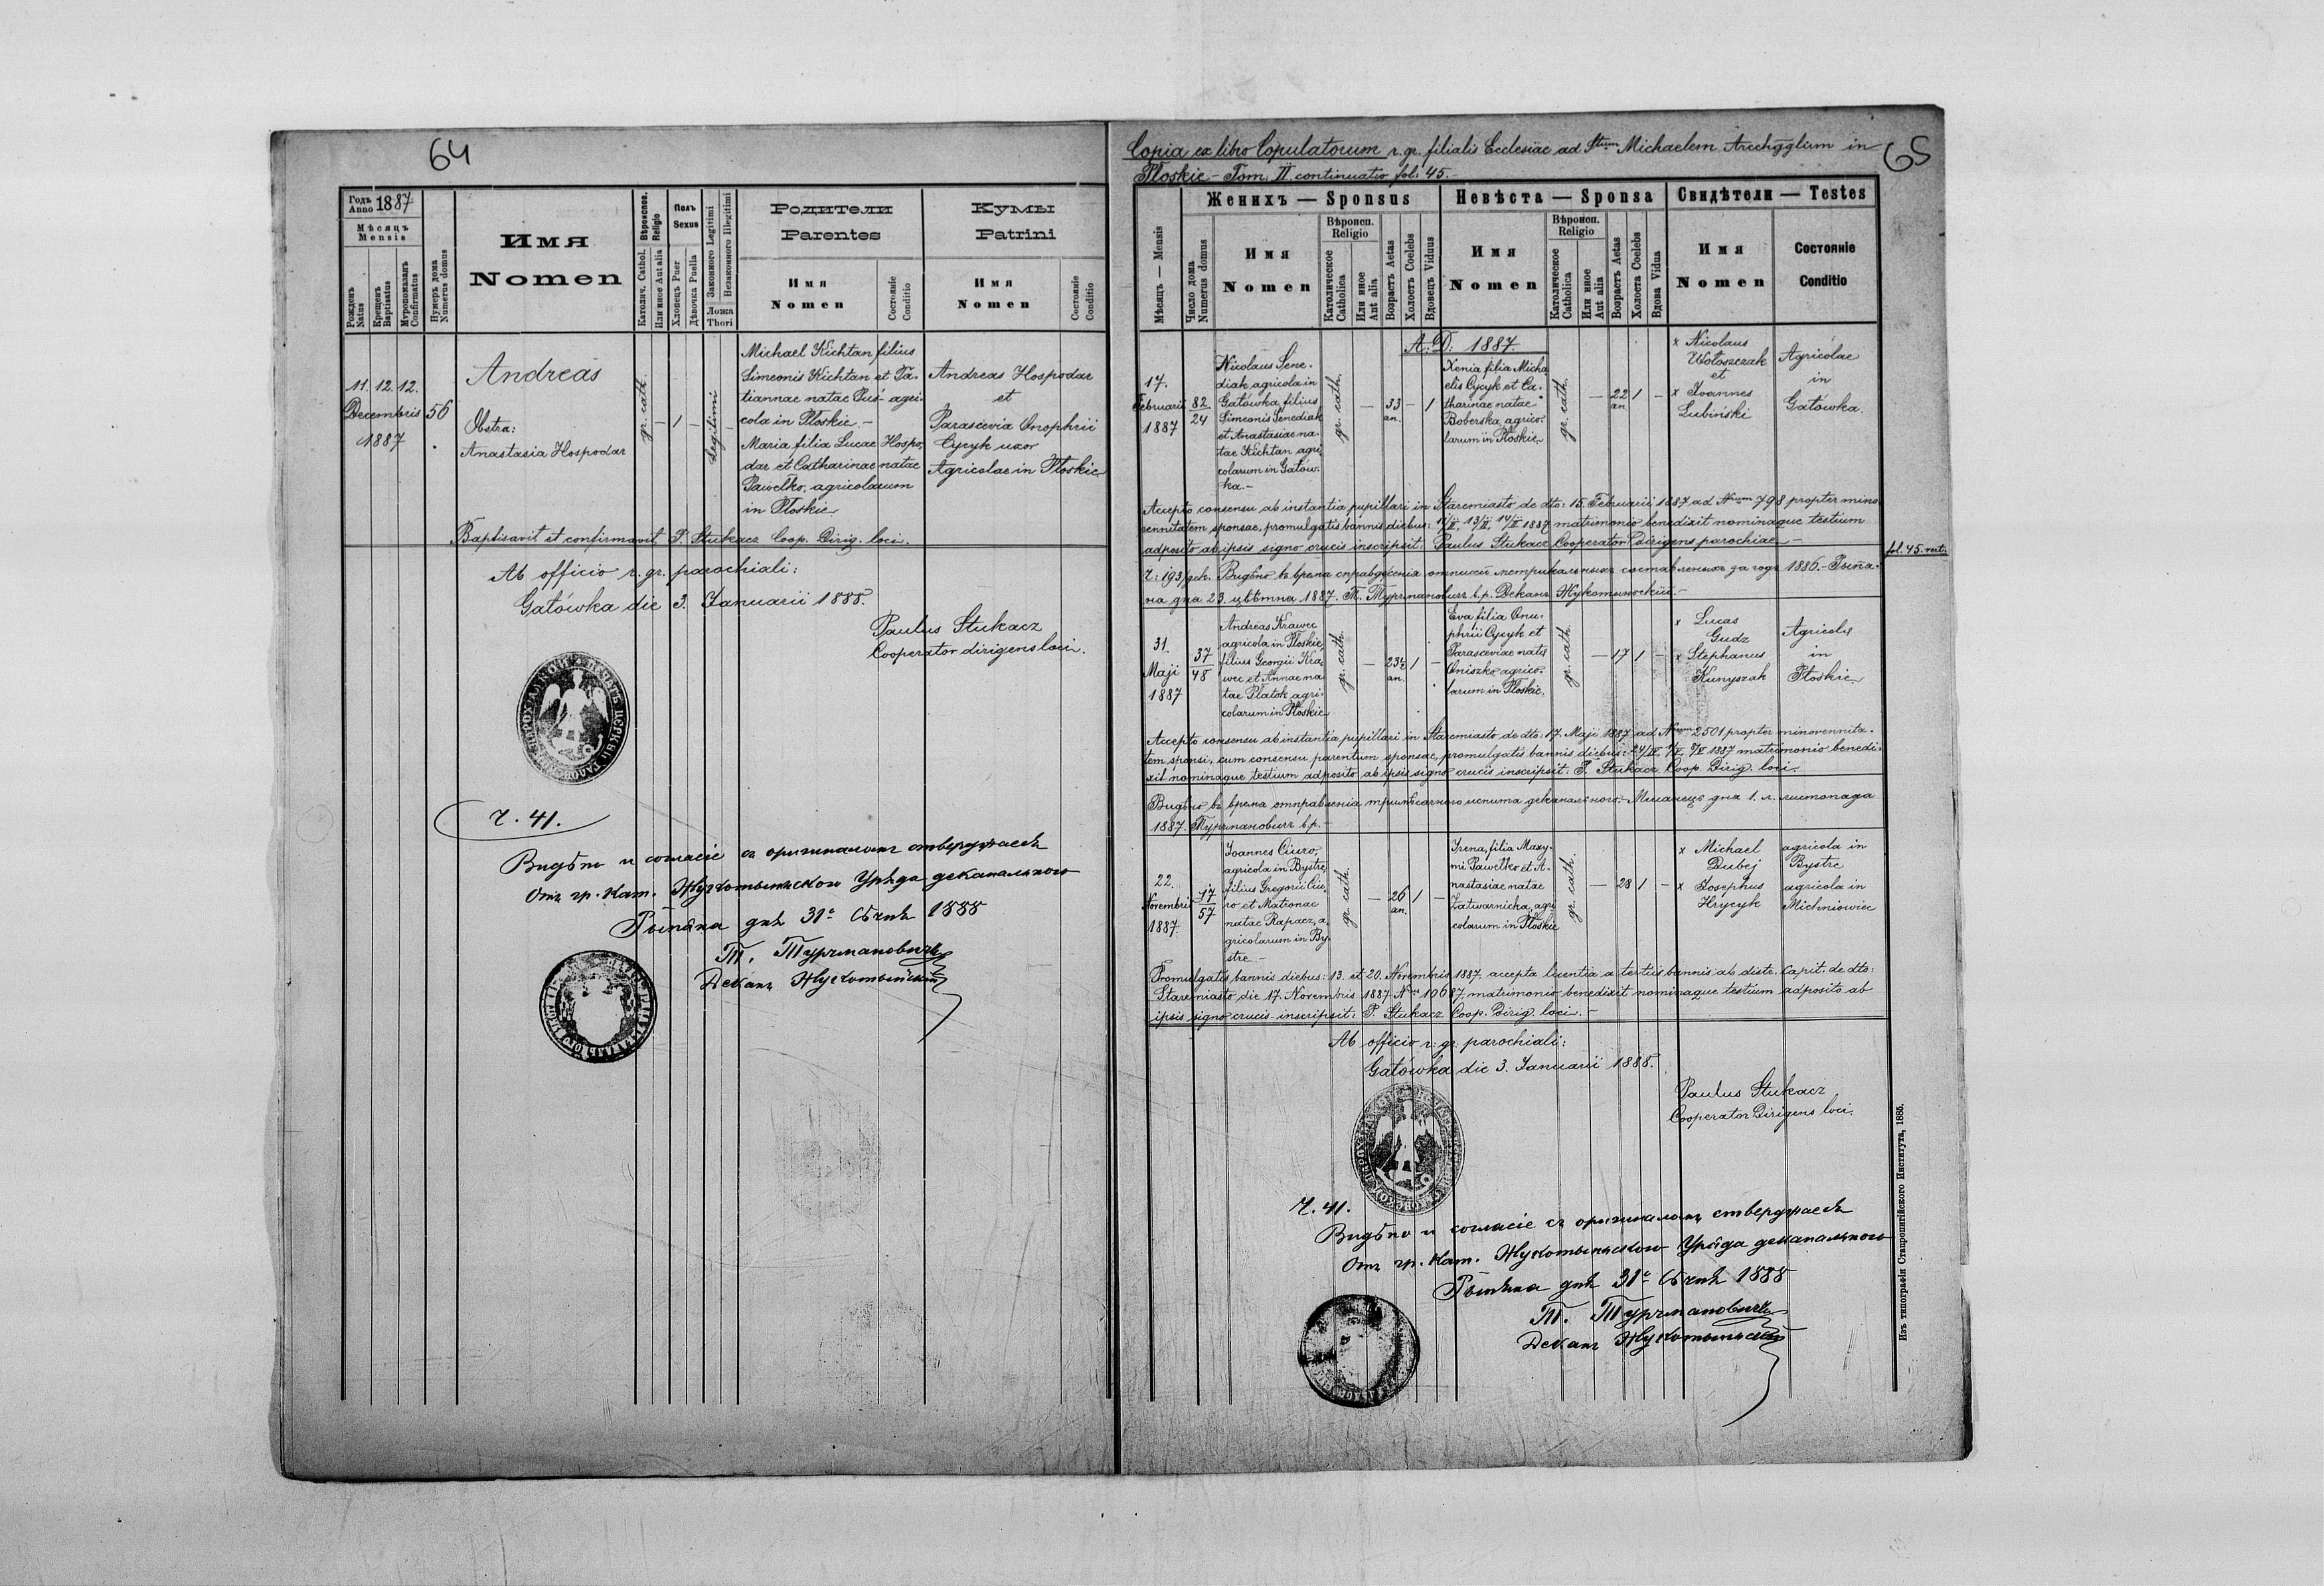 64
Годъ Anno 1887
Мѣсяцъ
Mensis
Рожденъ Natus
Крещенъ Baptisatus
Мѵропомазанъ Confirmatus
Нумеръ дома Numerus domus
Имя
Nomen
Вѣроиспов. Religio
Католич. Cathol.
Или иное Aut alia
Полъ
Sexus
Хлопецъ Puer
Дѣвочка Puella
Законного Legitimi
Незаконного Illegitimi
Ложа
Thori
Родители
Parentes
Имя
Nomen
Состояніе
Conditio
Кумы
Patrini
Имя
Nomen
Состояніе
Conditio
11. 12. 12.
Decembris
1887
56
Andreas
Obstra:
Anastasia Hospodar
gr. cath.
– 1 –
Legitimi
Michael Kichtan, filius
Simeonis Kichtan et Ta-
tiannae natae Puś- agri-
cola in Płoskie.–
Maria filia Lucae Hospo-
dar et Catharinae natae
Pawełko, agricolarum
in Płoskie.
Andreas Hospodar
et
Parascevia Onophrii
Cycyk uxor
Agricolae in Płoskie
Baptisavit et confirmavit P. Stukacz Coop. Dirig. loci.
Ab officio r. gr. parochiali:
Gałówka die 3. Januarii 1888.
Paulus Stukacz
Cooperator dirigens loci.
Ч. 41.
Видѣно и согласіе съ оригиналомъ стверджаесь
Отъ гр. кат. Жукотыньского Уряда деканального
Рыпяна дня 31го Сѣчня 1888
Т. Турчмановичъ
Деканъ Жукотыньскій
Copia ex libro Copulatorum r. gr. filialis Ecclesiae ad Stum Michaelem Archgglum in
65
Płoskie – Tom: II. continuatio fol: 45.–
Мѣсяцъ — Mensis
Число дома
Numerus domus
Женихъ — Sponsus
Имя
Nomen
Вѣроисп.
Religio
Католическое
Catholica
Или иное
Aut alia
Возрастъ Aetas
Холостъ Coelebs
Вдовецъ Viduus
Невѣста — Sponsa
Имя
Nomen
Вѣроисп.
Religio
Католическое
Catholica
Или иное
Aut alia
Возрастъ Aetas
Холоста Coelebs
Вдова Vidua
Свидѣтели — Testes
Имя
Nomen
Состояніе
Conditio
A. D. 1887.
17.
Februarii
1887
82
24
Nicolaus Sene-
diak agricola in
Gałówka, filius
Simeonis Senediak
et Anastasiae na-
tae Kichtan agri-
colarum in Gałów-
ka.–
gr. cath.
– 33 an. – 1
Xenia filia Micha-
elis Cycyk et Ca-
tharinae natae
Boberska, agrico-
larum in Płoskie
gr. cath.
– 22 an. 1 –
x Nicolaus
Wołoszczak
et
x Joannes
Lubiński
Agricolae
in
Gałówka.
Accepto consensu ab instantia pupillari in Staremiasto de dto: 15. Februarii 1887 ad Nrum 798 propter mino-
rennitatem sponsae, promulgatis bannis diebus: 11/II, 13/II, 14/II 1887 matrimonio benedixit nominaque testium
adposito ab ipsis signo crucis inscripsit: Paulus Stukacz Cooperator dirigens parochiae.–
fol. 45. vert.
Ч: 193/дек. Видѣно въ время справдженія отписей метрикальныхъ составленыхъ за годъ 1886.– Рыпя-
на дня 23. цвѣтня 1887. Т. Турчмановичъ в.р. Деканъ Жукотыньскій.–
31.
Maji
1887
37
48
Andreas Krawec
agricola in Płoskie,
filius Georgii Kra-
wec et Annae na-
tae Płatok agri-
colarum in Płoskie
gr. cath.
– 23½ an. 1 –
Eva filia Onu-
phrii Cycyk et
Parasceviae natae
Oniszko, agrico-
larum in Płoskie.
gr. cath.
– 17 1 –
x Lucas
Gudz
x Stephanus
Kunyszak
Agricolae
in
Płoskie.
Accepto consensu ab instantia pupillari in Staremiasto de dto: 17. Maji 1887 ad Nrum 2501 propter minorennita-
tem sponsi, cum consensu parentum sponsae, promulgatis bannis diebus: 1887 matrimonio benedi-
xit nominaque testium adposito ab ipsis signo crucis inscripsit: P. Stukacz Coop. Dirig. loci.
Видѣно въ время отправленія трилѣсячного испита деканального.– Мшанець дня 1. л. листопада
1887. Турчмановичъ в.р.–
22.
Novembris
1887.
17
57
Joannes Ciuro,
agricola in Bystre,
filius Gregorii Ciu-
ro et Matronae
natae Rapacz, a-
gricolarum in By-
stre.–
gr. cath.
– 26 an. 1 –
Irena, filia Maxy-
mi Pawełko et A-
nastasiae natae
Zatwarnicka, agri-
colarum in Płoskie
gr. cath.
– 28 1 –
x Michael
Dubej
x Josephus
Hrycyk
agricola in
Bystre
agricola in
Michniowiec
Promulgatis bannis diebus: 13. et 20. Novembris 1887, accepta licentia a tertiis bannis ab distr. Capit. de dto:
Staremiasto die 17. Novembris 1887 Nro 10687, matrimonio benedixit nominaque testium adposito ab
ipsis signo crucis inscripsit: P. Stukacz Coop. Dirig. loci.–
Ab officio r. gr. parochiali:
Gałówka die 3. Januarii 1888.
Paulus Stukacz
Cooperator Dirigens loci.
Ч. 41.
Видѣно и согласіе съ оригиналомъ стверджаесь
Отъ гр. кат. Жукотыньского Уряда деканального
Рыпяна дня 31го Сѣчня 1888
Т. Турчмановичъ
Деканъ Жукотыньскій
Изъ типографіи Ставропигійского Института, 1885.